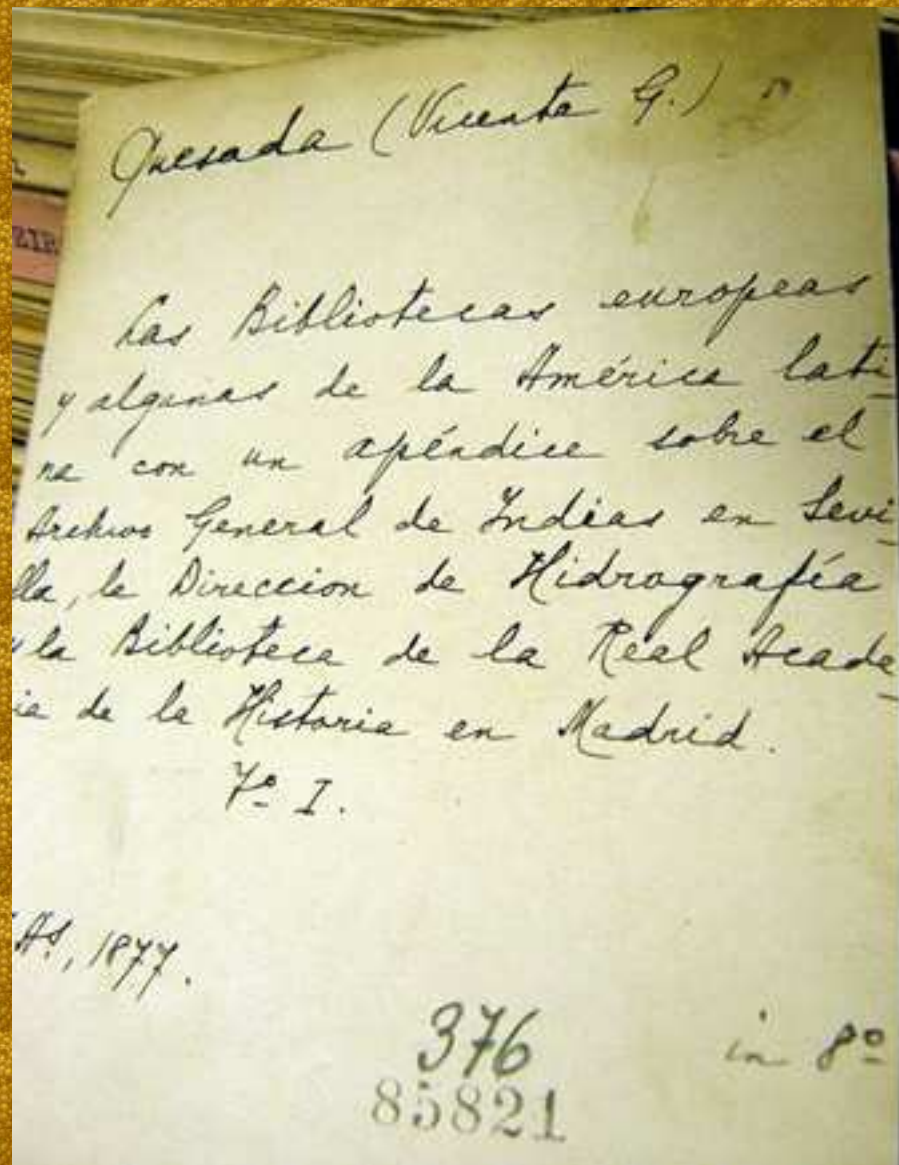 Quesada (Vicente G.)
EIR
Las Bibliotecas europeas
y algunas de la América lati-
na con un apéndice sobre el
Archivo General de Indias en Sevi-
lla, la Direccion de Hidrografía
y la Biblioteca de la Real Acade-
ia de la Historia en Madrid.
Tº I.
As, 1877.
376
in 8º
85821